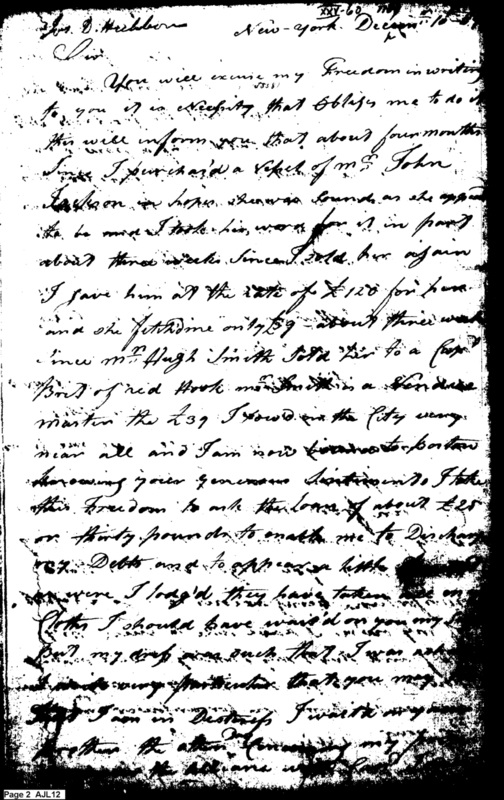 Jos. D. Hechbon
New-York. Decem.r 10
Sir
You will excuse my Freedom in writing
to you it is Necessity that obliges me to do it
this will inform you that about four months
Since I purchas'd a Vessel of mr. John
Jackson in hopes she was Sound as she
to be and I took his word for it in part
about three weeks Since I sold her again
I gave him at the rate of £120 for her
and she fetch'd me only £39 about three week
since mr. Hugh Smith Sold her to a Cap
of red Hook mr. Smith is a Vendue
master the £39 I in the City very
near all and I am now to
your generous Sentiments I take
this Freedom to ask the loan of about £25
or thirty pounds to enable me to Discharge
my Debts and to appear a little
were I lodg'd they have taken all my
Cloths I should have wait'd on you my
but my dress was such that I was
I very particular that you may
that I am in Distress I wait'd on your
brother the other Concerning my
the
Page 2 AJL12